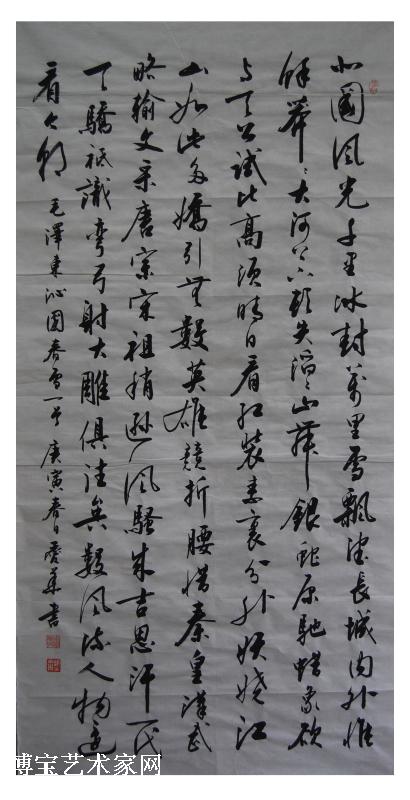 北國风光千里冰封萬里雪飄望長城内外惟
馀莽〻大河上下頓失滔〻山舞銀蛇原馳蜡象欲
与天公試比高須晴日看红裝素裹分外妖娆江
山如此多嬌引無數英雄競折腰惜秦皇漢武
略輸文采唐宗宋祖稍遜风騷成吉思汗一代
天驕祗識彎弓射大雕俱往矣數风流人物还
看今朝 毛澤東沁園春雪一首 庚寅春日 書
博宝艺术家网